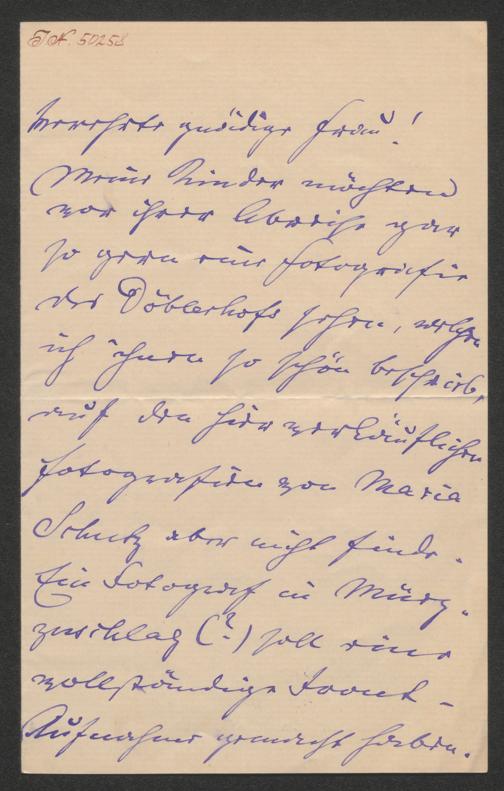 J.N. 50258
Verehrte gnädige Frau!
Meine Kinder möchten
vor ihrer Abreise gar
so gern eine Fotografie
des Döblerhofs sehen, welchen
ich ihnen so schön beschrieb,
auf den hier verkäuflichen
Fotografien von Maria
Schutz aber nicht finde.
Ein Fotograf in Mürz-
zuschlag (?) soll eine
vollständige Front-
Aufnahme gemacht haben.